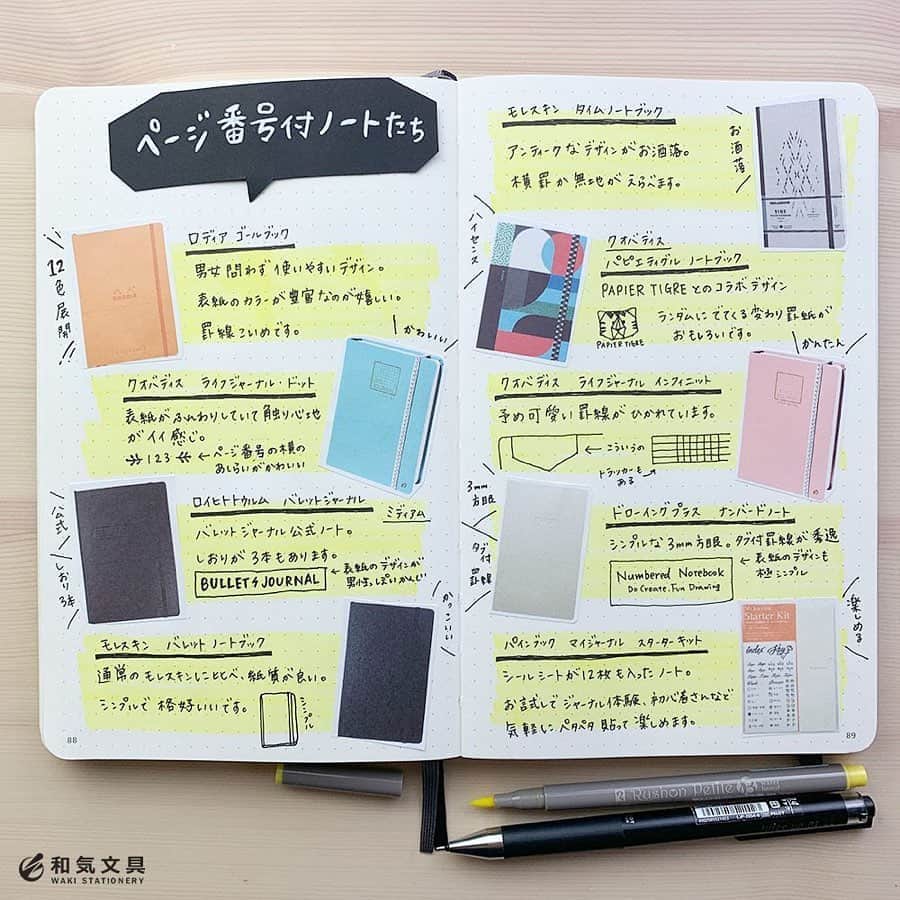 ページ番号付ノートたち
12色展開!!
ロディア ゴールブック
男女問わず使いやすいデザイン。
表紙のカラーが豊富なのが嬉しい。
罫線こいめです。
かわいい
クオバディス ライフジャーナル・ドット
表紙がふんわりしていて触り心地
がイイ感じ。
123 ←ページ番号の横の
あしらいがかわいい
公式
しおり3本
ロイヒトトゥルム バレットジャーナル
ミディアム
バレットジャーナル公式ノート。
しおりが3本もあります。
BULLET JOURNAL
←表紙のデザインが
男性っぽいかんじ
かっこいい
モレスキン バレットノートブック
通常のモレスキンに比べ、紙質が良い。
シンプルで格好いいです。
シンプル
88
モレスキン タイムノートブック
アンティークなデザインがお洒落。
横罫か無地がえらべます。
お洒落
ハイセンス
クオバディス
パピエティグル ノートブック
PAPIER TIGREとのコラボデザイン
ランダムにでてくる変わり罫紙が
おもしろいです。
PAPIER TIGRE
かんたん
クオバディス ライフジャーナル インフィニット
予め可愛い罫線がひかれています。
←こういうの
トラッカーも
ある
3mm
方眼
タブ付
罫線
ドローイングプラス ナンバードノート
シンプルな3mm方眼。タブ付罫線が秀逸
Numbered Notebook
Do Create. Fun Drawing
←表紙のデザインも
極シンプル
楽しめる
パインブック マイジャーナル スターターキット
シールシートが12枚も入ったノート。
お試しでジャーナル体験、初心者さんなど
気軽にペタペタ貼って楽しめます。
Starter Kit
Index
89
Rushon Petite
和気文具
WAKI STATIONERY